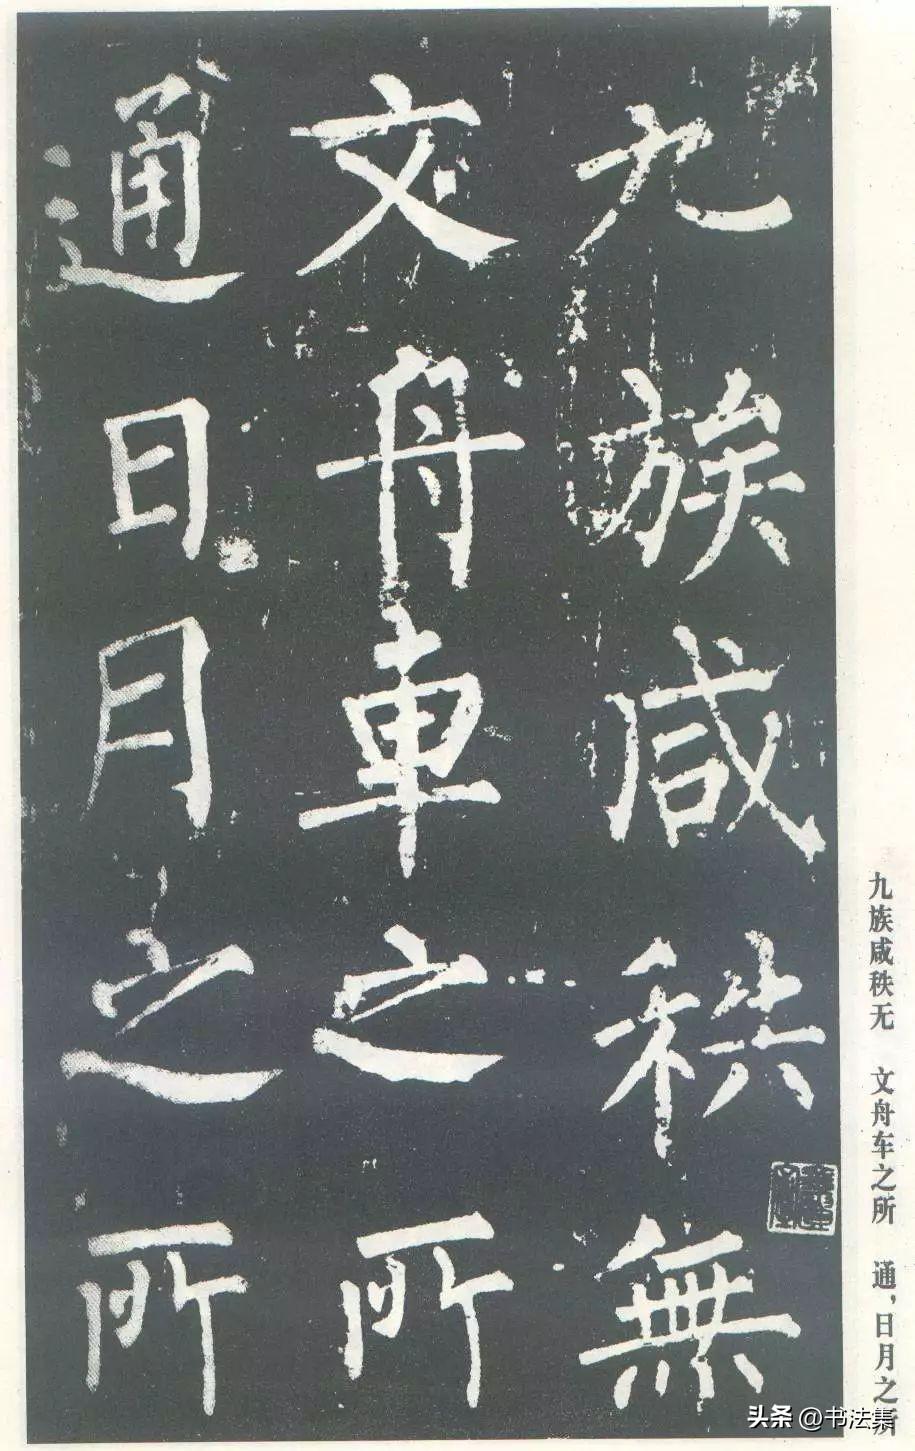 九族咸秩無
文舟車之所
通日月之所
九族咸秩无　文舟车之所　通，日月之所
头条 @书法集